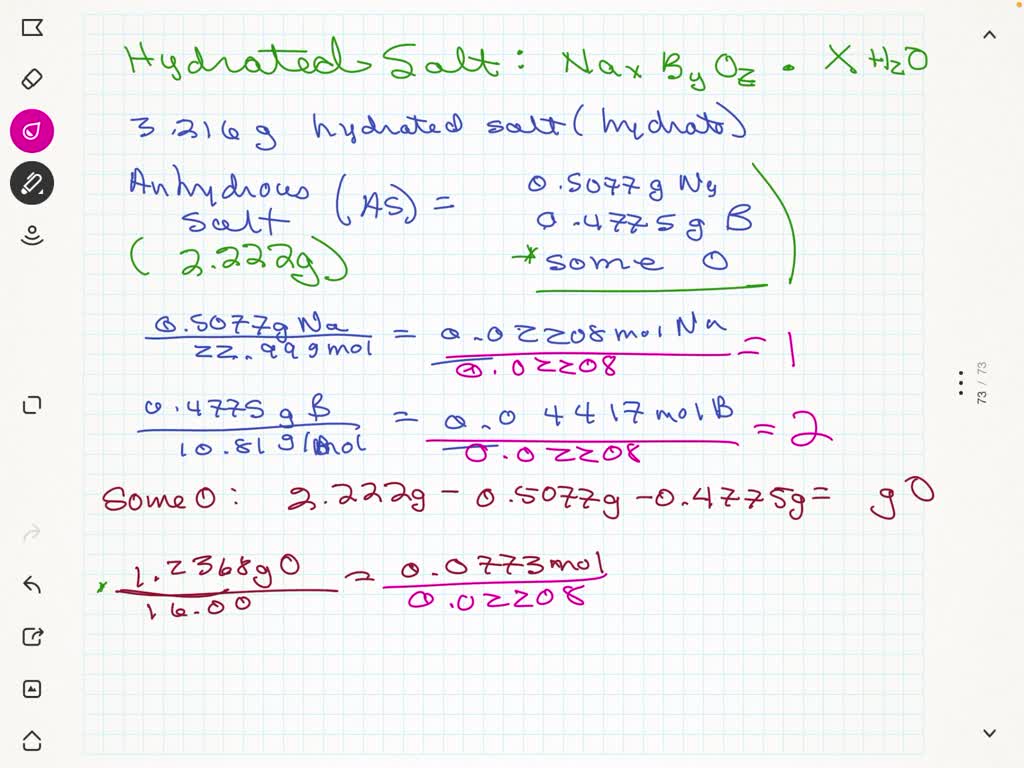 Hydrated Salt: NaxByOz • XH2O
3.216g hydrated salt (hydrate)
Anhydrous Salt (AS) = 0.5077g Na
0.4775g B
(2.222g) * some O
0.5077g Na / 22.99gmol = 0.02208 mol Na / 0.02208 = 1
0.4775g B / 10.81g/mol = 0.04417 mol B / 0.02208 = 2
Some O: 2.222g - 0.5077g - 0.4775g = gO
* 1.2368gO / 16.00 = 0.0773mol / 0.02208
73 / 73